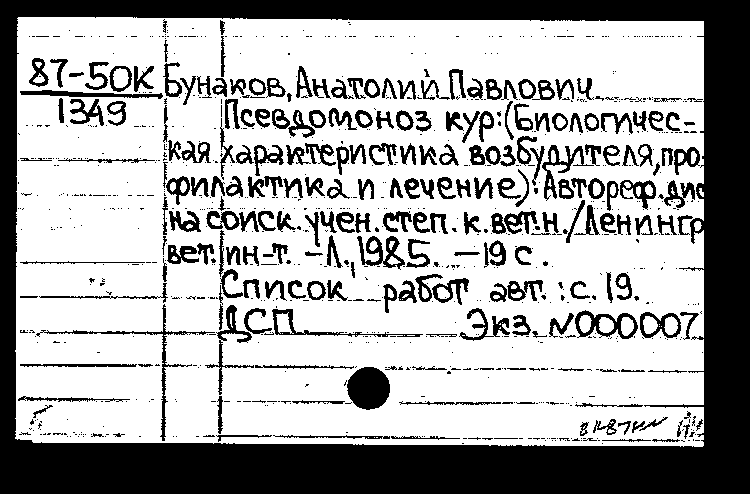 87-50К Бунаков, Анатолий Павлович
1349 Псевдомоноз кур: (Биологичес-
кая характеристика возбудителя, про-
филактика и лечение): Автореф. дис
на соиск. учен. степ. к. вет. н. / Ленингр
вет. ин-т. – Л., 1985. – 19 с.
Список работ авт.: с. 19.
ДСП Экз. N000007